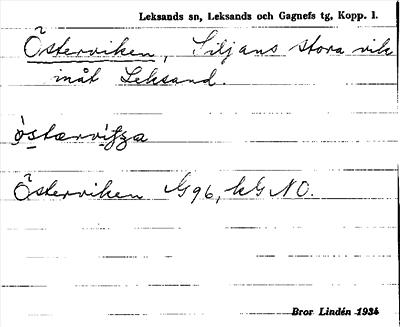 Leksands sn, Leksands och Gagnefs tg, Kopp. l.
Österviken, Siljans stora vik
inåt Leksand.
Österviken G 96, kG NO.
Bror Lindén 1934